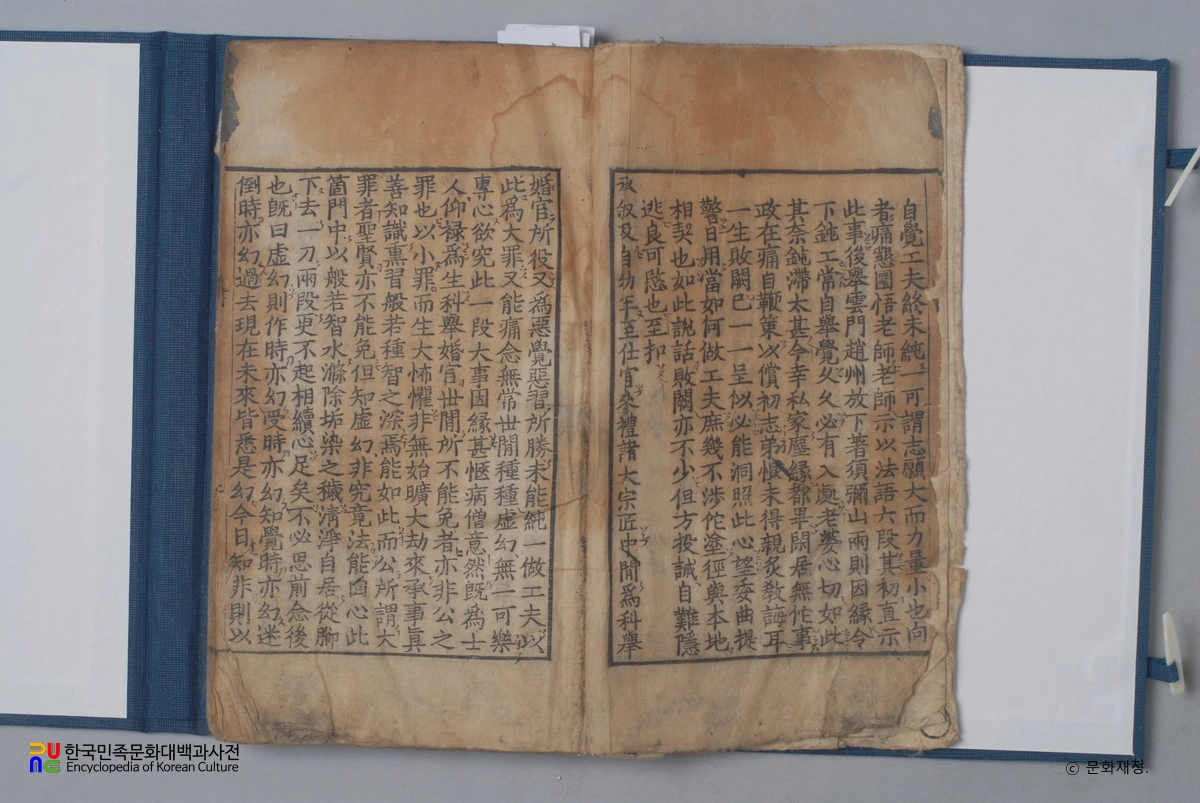 自覺工夫終未純一可謂志願大而力量小也向
者痛懇圜悟老師老師示以法語六段其初直示
此事後擧雲門趙州放下著須彌山兩則因緣令
下鈍工常自擧覺久久必有入處老婆心切如此
其奈鈍滯太甚今幸私家塵緣都畢閑居無佗事
政在痛自鞭策以償初志弟恨未得親炙敎誨耳
一生敗闕已一一呈似必能洞照此心望委曲提
警日用當如何做工夫庶幾不涉佗塗徑與本地
相契也如此說話敗闕亦不少但方投誠自難隱
逃良可愍也至扣
敍及自幼年至仕官參禮諸大宗匠中閒爲科擧
婚官所役又爲惡覺惡習所勝未能純一做工夫以
此爲大罪又能痛念無常世閒種種虛幻無一可樂
專心欲究此一段大事因緣甚愜病僧意然旣爲士
人仰祿爲生科擧婚官世閒所不能免者亦非公之
罪也以小罪而生大怖懼非無始曠大劫來承事眞
善知識熏習般若種智之深焉能如此而公所謂大
罪者聖賢亦不能免但知虛幻非究竟法能回心此
箇門中以般若智水滌除垢染之穢淸淨自居從腳
下去一刀兩段更不起相續心足矣不必思前念後
也旣曰虛幻則作時亦幻受時亦幻知覺時亦幻迷
倒時亦幻過去現在未來皆悉是幻今日知非則以
한국민족문화대백과사전
Encyclopedia of Korean Culture
ⓒ 문화재청.